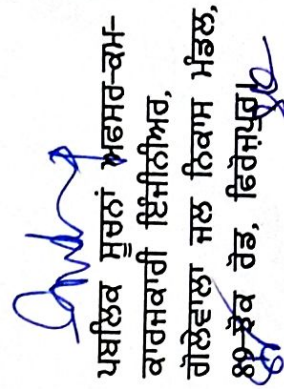 ਪਬਲਿਕ ਸੂਚਨਾਂ ਅਫਸਰ-ਕਮ-
ਕਾਰਜਕਾਰੀ ਇੰਜੀਨੀਅਰ,
ਗੋਲੇਵਾਲਾ ਜਲ ਨਿਕਾਸ ਮੰਡਲ,
89-ਲੋਕ ਰੋਡ, ਫਿਰੋਜ਼ਪੁਰ।